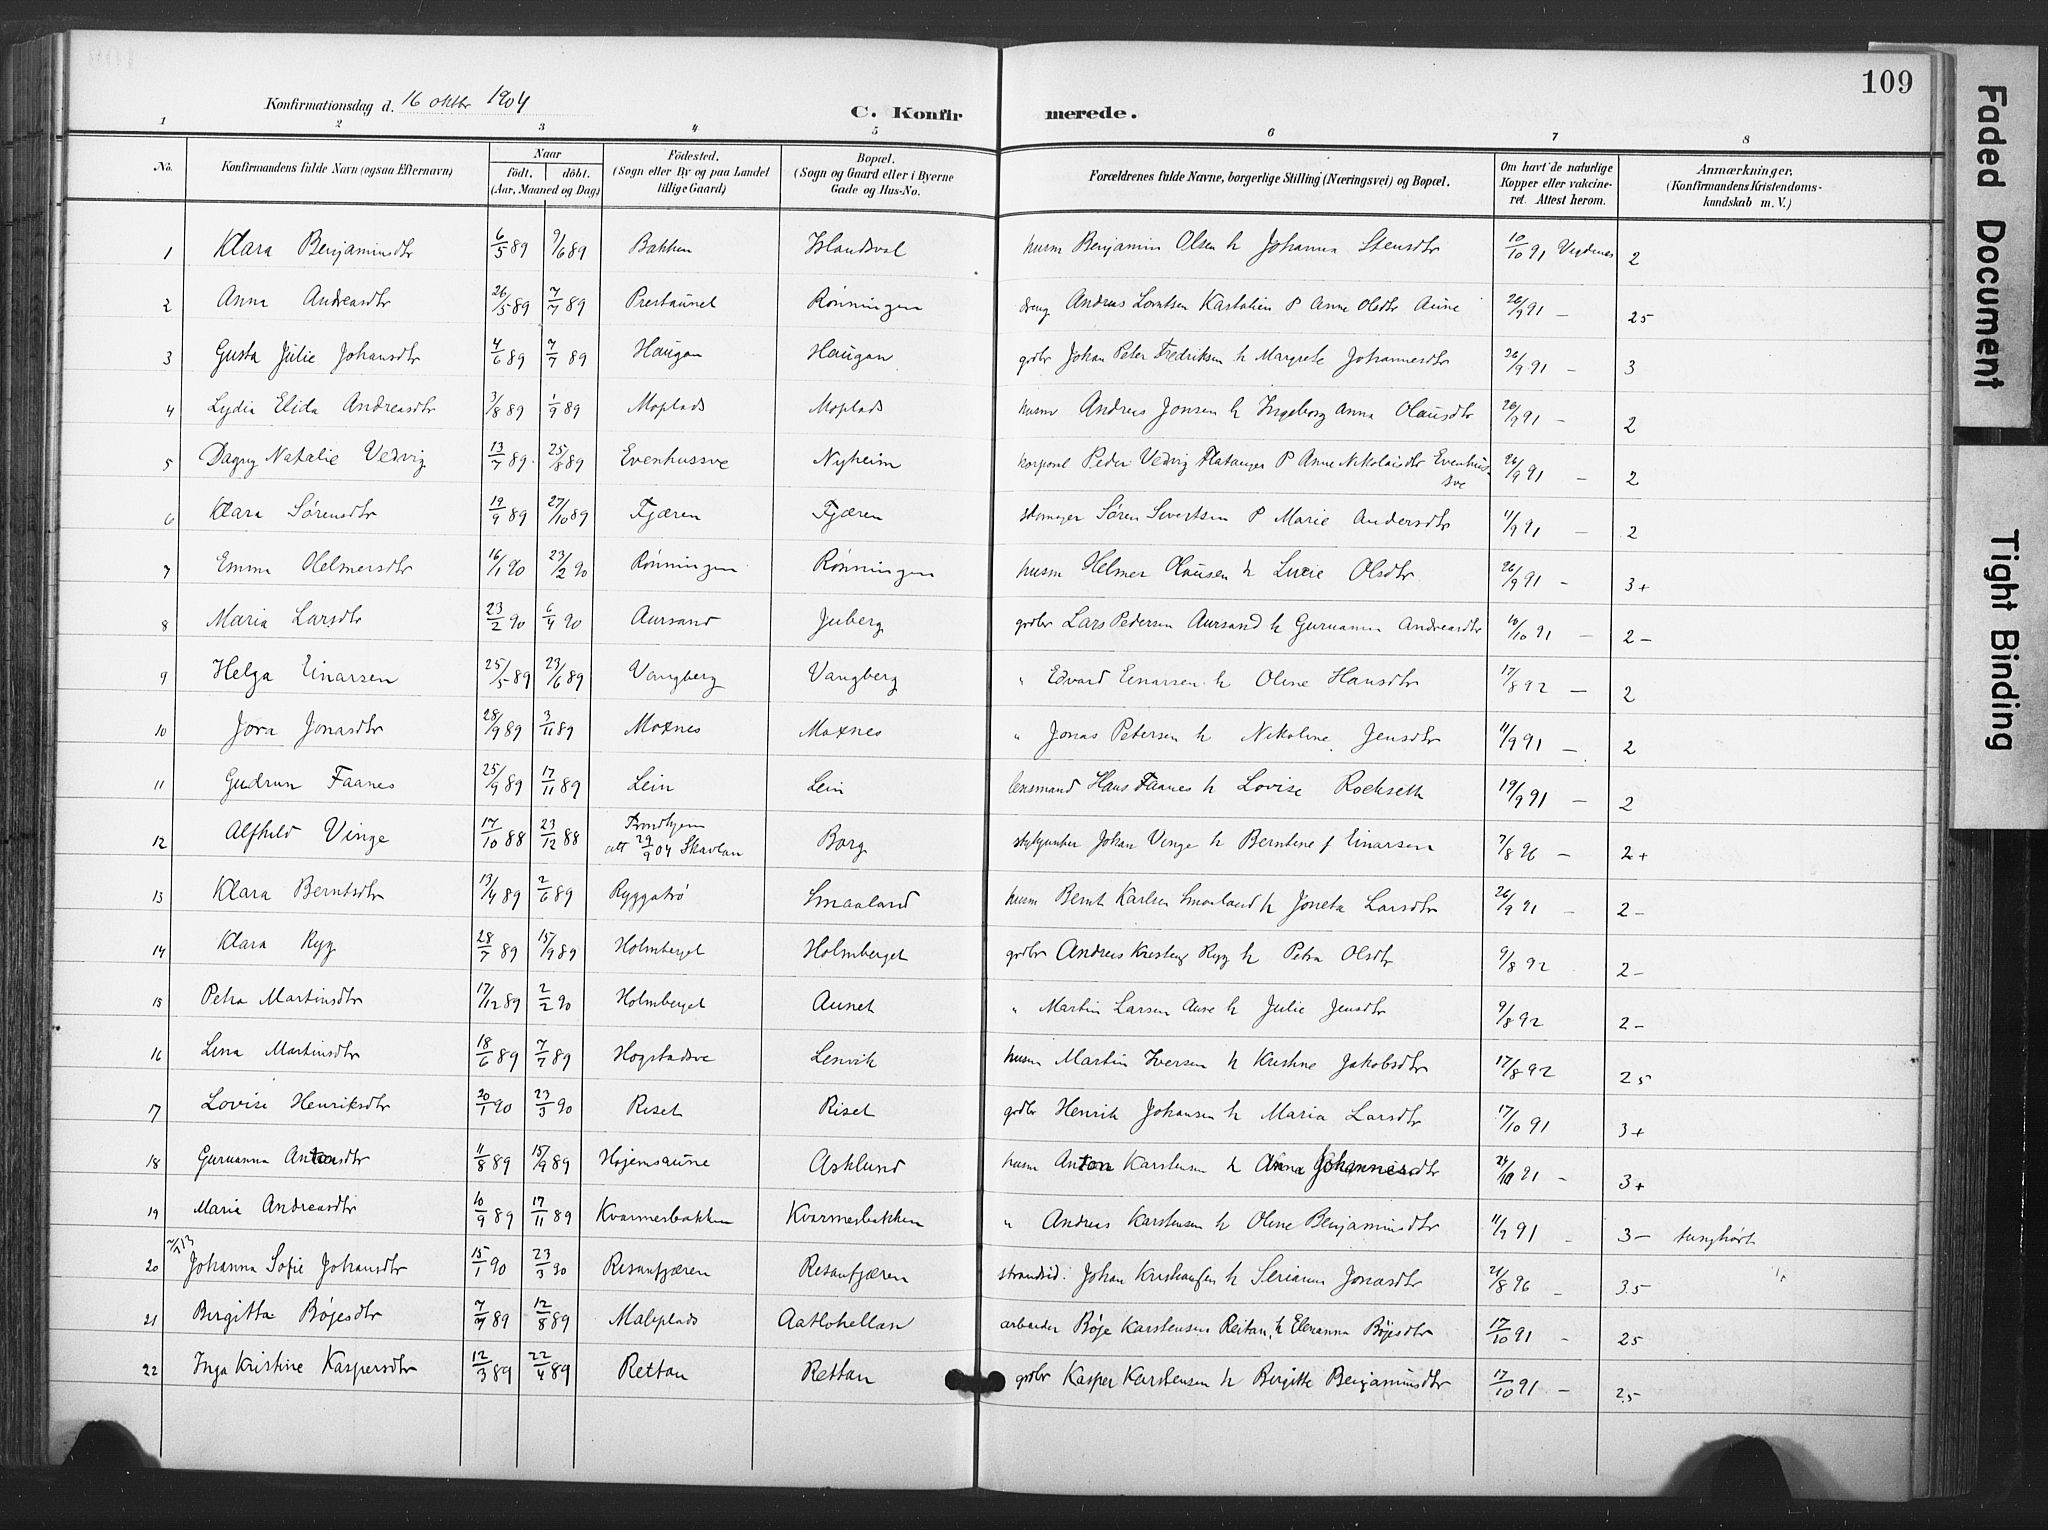 109
Konfirmationsdag d. 16 oktbr 1904
C. Konfirmerede.
1 2 3 4 5 6 7 8
No. Konfirmandens fulde Navn (ogsaa Efternavn) Naar födt. döbt. (Aar, Maaned og Dag) Födested. (Sogn eller By og paa Landet tillige Gaard) Bopæl. (Sogn og Gaard eller i Byerne Gade og Hus-No. Forældrenes fulde Navne, borgerlige Stilling (Næringsvei) og Bopæl. Om havt de naturlige Kopper eller vakcineret. Attest herom. Anmærkninger. (Konfirmandens Kristendomskundskab m. V.)
1 Klara Benjaminsdtr 6/5 89 9/6 89 Bakken Islandsval husm Benjamin Olsen h Johanna Stensdtr 10/10 91 2
2 Anna Andreasdtr 26/5 89 7/7 89 Prestaunet Rønningen dreng Andreas Lorntsen Kastalien P Anne Olsdtr Aune 26/9 91 — 25
3 Gusta Julie Johansdtr 4/6 89 7/7 89 Haugan Haugan grdbr Johan Peter Fredriksen h Margrete Johannesdtr 26/9 91 — 3
4 Lydia Elida Andreasdtr 3/8 89 1/9 89 Moplads Moplads husm Andreas Jonsen h Ingeborg Anna Olausdtr 26/9 91 — 2
5 Dagny Natalie Vedvig 13/7 89 25/8 89 Evenhussve Nyheim korporal Peder Vedvig Flatanger P Anne Nikolaisdtr Evenhussve 26/9 91 — 2
6 Klara Sørensdtr 19/9 89 27/10 89 Fjæren Fjæren skomager Søren Sivertsen P Marie Andersdtr 11/9 91 — 2
7 Emma Helmersdtr 16/1 90 23/2 90 Rønningen Rønningen husm Helmer Olausen h Lucie Olsdtr 26/9 91 — 3+
8 Maria Larsdtr 23/2 90 6/4 90 Aursand Juberg grdbr Lars Pedersen Aursand h Guruanna Andreasdtr 10/10 91 — 2-
9 Helga Einarsen 25/5 89 23/6 89 Vangberg Vangberg " Edvard Einarsen h Oline Hansdtr 17/8 92 — 2
10 Jora Jonasdtr 28/9 89 3/11 89 Moxnes Moxnes " Jonas Petersen h Nikoline Jensdtr 11/9 91 — 2
11 Gudrun Faanes 25/9 89 17/11 89 Lein Lein lensmand Hans Faanes h Lovise Rockseth 19/9 91 — 2
12 Alfhild Vinge 17/10 88 23/12 88 Trondhjem att 29/9 04 Skavlan Borg stykjunker Johan Vinge h Berntine f Einarsen 7/8 96 — 2+
13 Klara Berntsdtr 13/4 89 2/6 89 Ryggatrø Smaaland husm Bernt Karlsen Smaaland h Joneta Larsdtr 26/9 91 — 2-
14 Klara Ryg 28/7 89 15/9 89 Holmberget Holmberget grdbr Andreas Kristens Ryg h Petra Olsdtr 9/8 92 2-
15 Petra Martinsdtr 17/12 89 2/2 90 Holmberget Aunet " Martin Larsen Aune h Julie Jensdtr 9/8 92 2-
16 Lina Martinsdtr 18/6 89 7/7 89 Hogstadsve Lenvik husm Martin Iversen h Kristine Jakobsdtr 17/8 92 25
17 Lovise Henriksdtr 20/1 90 23/3 90 Riset Riset grdbr Henrik Johansen h Maria Larsdtr 17/10 91 3+
18 Guruanna Antonsdtr 11/8 89 15/9 89 Hojemsaune Asklund husm Anton Karstensen h Anna Johannesdtr 24/10 91 — 3+
19 Maria Andreasdtr 10/9 89 17/11 89 Kvarmesbakken Kvarmesbakken " Andreas Karstensen h Oline Benjaminsdtr 11/9 91 — 3- tunghørt
20 Johanna Sofie Johansdtr 15/1 90 23/3 90 Resanfjæren Resanfjæren strandsid. Johan Kristiansen h Serianna Jonasdtr 21/8 96 — 3.5
21 Birgitta Bøjesdtr 7/7 89 12/8 89 Maleplads Aatlohellan arbeider Bøje Karstensen Reitan h Elenanna Bøjesdtr 17/10 91 — 25
22 Inga Kristine Kaspersdtr 12/3 89 22/4 89 Rettan Rettan grdbr Kasper Karstensen h Birgitte Benjaminsdtr 17/10 91 — 2.5
Faded Document
Tight Binding